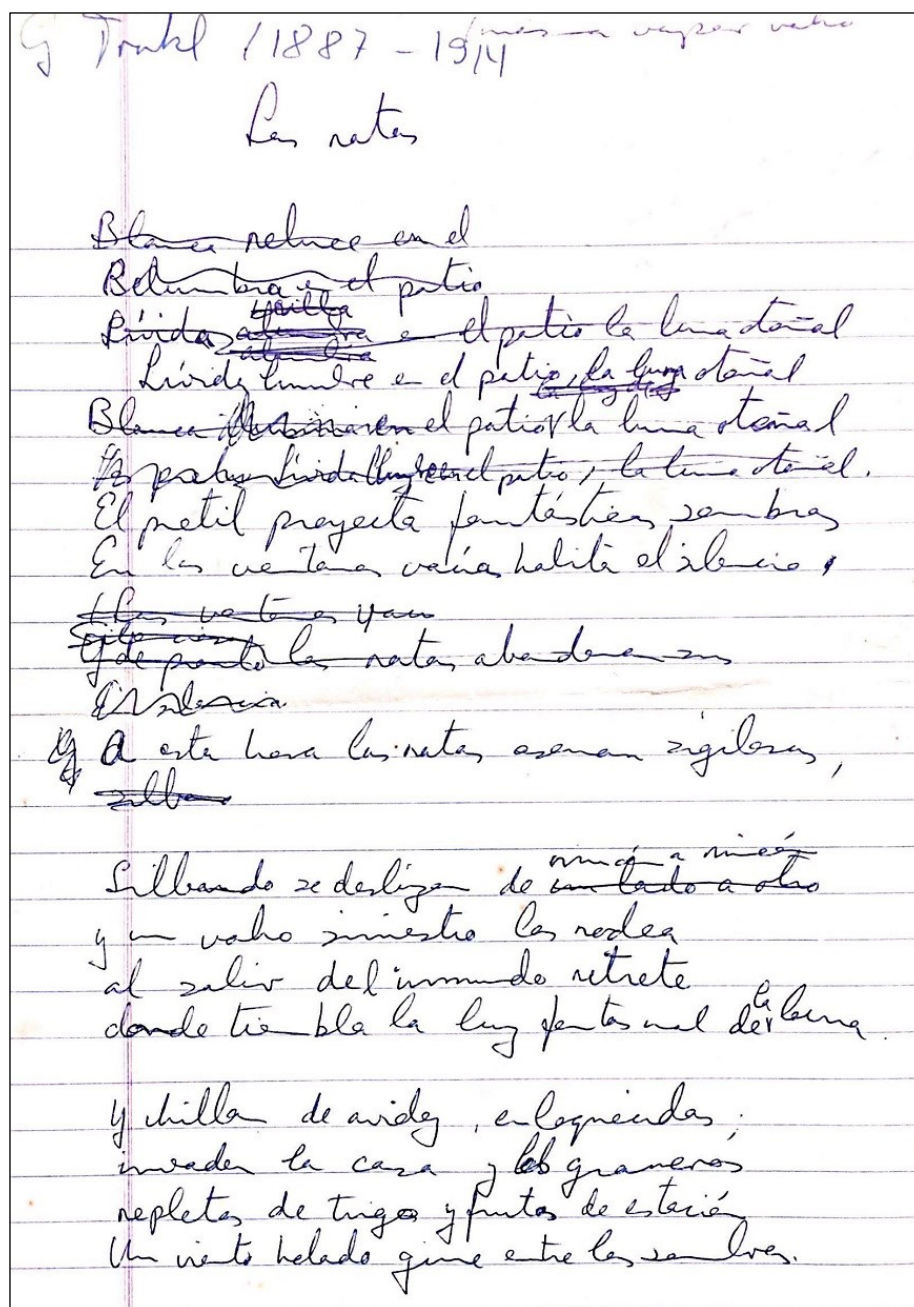 G Trakl /1887 - 1914
vapor vaho
Las ratas
Blanca reluce en el
Relumbra en el patio
brilla
Lívida alumbra en el patio la luna otoñal
alumbra
Lívida lumbre en el patio, la luna otoñal
Blanca en el patio la luna otoñal
Lívida en el patio, la luna otoñal.
El pretil proyecta fantásticas sombras
En las ventanas vacías habita el silencio,
y de pronto las ratas abandonan sus
El silencio
Y a esta hora las ratas asoman sigilosas,
silban
rincón a rincón
Silbando se deslizan de un lado a otro
y un vaho siniestro las rodea
al salir del inmundo retrete
donde tiembla la luz fantasmal de la luna.
Y chillan de avidez, enloquecidas,
invaden la casa y los graneros
repletos de trigo y frutos de estación
Un viento helado gime entre las sombras.